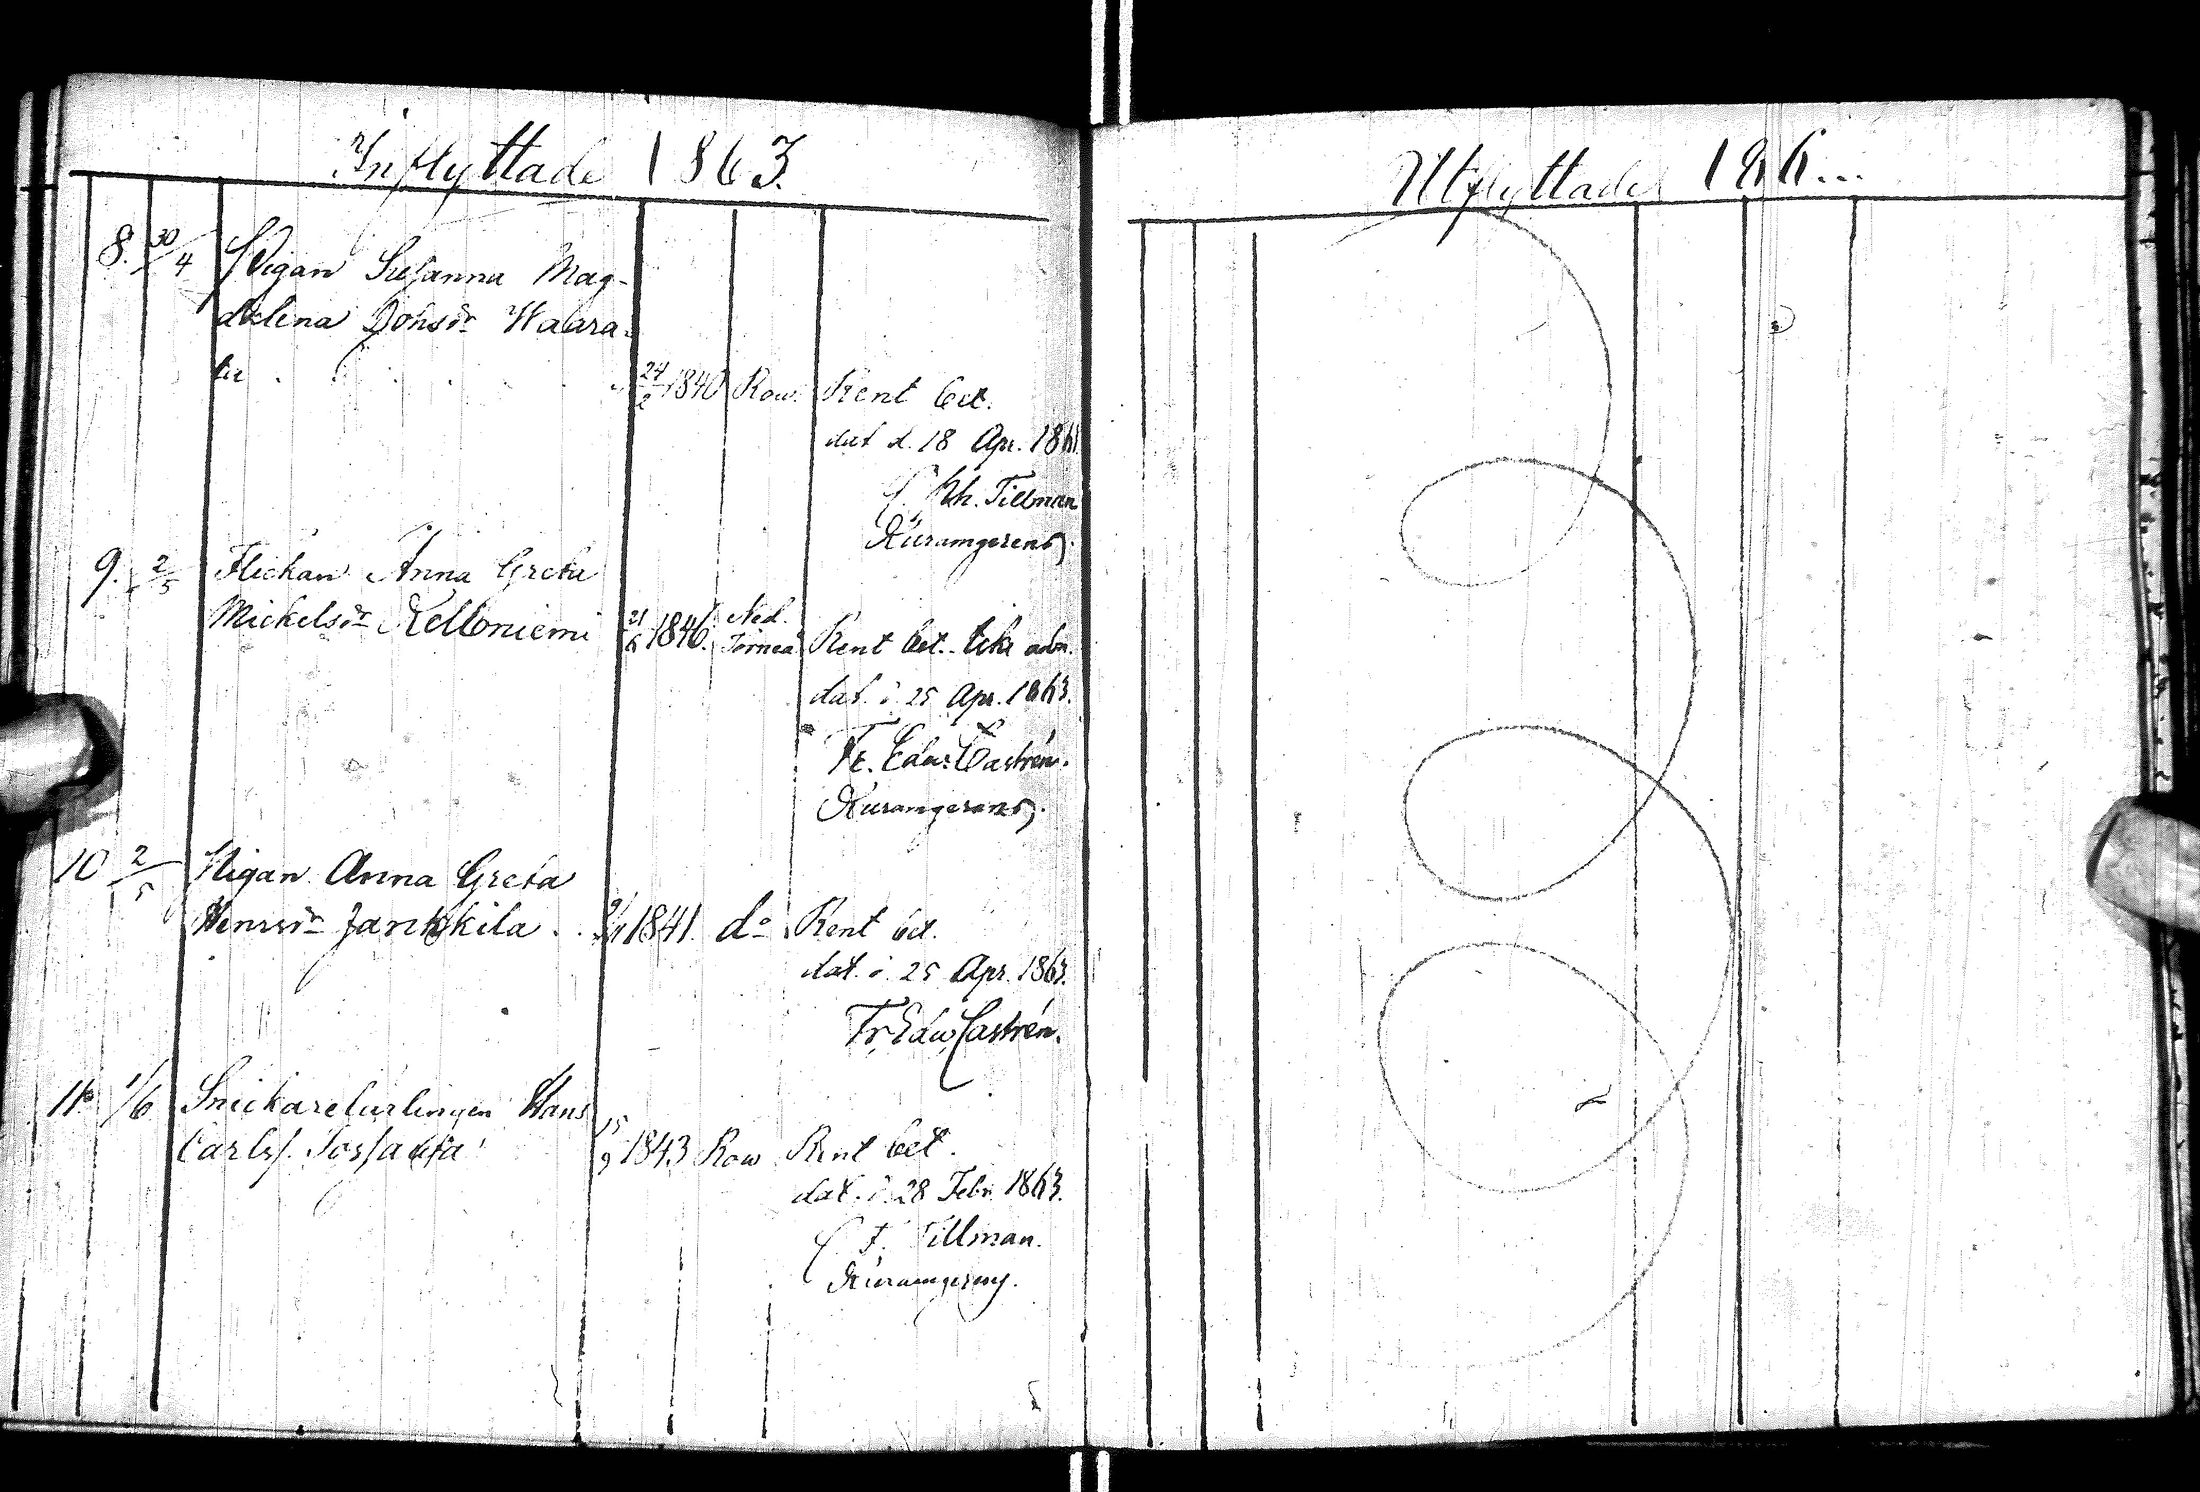 Inflyttade 1863.
8. 30/4 Pigan Susanna Mag-
dalena Johsdr Waara-
la . . . . . 24/2 1840 Row. Rent bet.
dat d. 18 Apr. 1863.
Kh. Tillman
Kyramgerens).
9. 2/5 Flickan Anna Greta
Mickelsdr Kelloniemi 21/6 1846. Ned. Torneå Rent bet. icke adm.
dat. d. 25 Apr. 1863.
Fr. Edw. Castrén.
Kyramgerens).
10 2/5 Pigan Anna Greta
Henrsdr Jankkila . . 1841. do Rent bet.
dat. d. 25 Apr. 1863.
Fr. Edw. Castrén.
11. 1/6 Snickarelärlingen Hans
Carlss. 15/9 1843 Row Rent bet.
dat. d. 28 Febr. 1863.
Tillman.
Utflyttade 186...